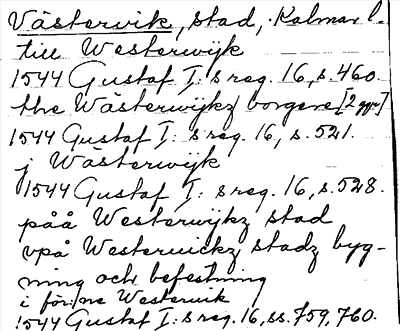 Västervik, stad, Kalmar l.
till Westerwijk
1544 Gustaf I:s reg. 16, s. 460.
the Wästerwijkz borgere [2 ggr]
1544 Gustaf I:s reg. 16, s. 521.
j Wästerwijk
1544 Gustaf I:s reg. 16, s. 528.
påå Westerwijkz stad
vpå Westeruickz stadz byg-
ning och befestning
i för:ne Westeruik
1544 Gustaf I:s reg. 16, ss. 759, 760.